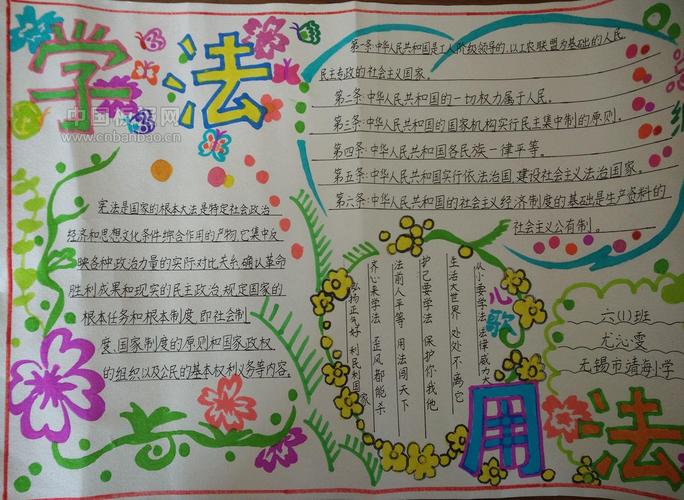 学法
中国板报网
www.cnbanbao.cn
第一条:中华人民共和国是工人阶级领导的,以工农联盟为基础的人民
民主专政的社会主义国家。
第二条:中华人民共和国的一切权力属于人民。
第三条:中华人民共和国的国家机构实行民主集中制的原则。
第四条:中华人民共和国各民族一律平等。
第五条:中华人民共和国实行依法治国,建设社会主义法治国家。
第六条:中华人民共和国的社会主义经济制度的基础是生产资料的
社会主义公有制。
宪法是国家的根本大法是特定社会政治
经济和思想文化条件综合作用的产物,它集中反
映各种政治力量的实际对比关系,确认革命
胜利成果和现实的民主政治,规定国家的
根本任务和根本制度,即社会制
度、国家制度的原则和国家政权
的组织以及公民的基本权利义务等内容。
心歌
从小要学法 法律威力大
生活大世界 处处不离它
护己要学法 保护你我他
法前人平等 用法闯天下
齐心来学法 歪风都能杀
弘扬正气好 利民利国家
六(1)班
尤沁雯
无锡市靖海小学
用法